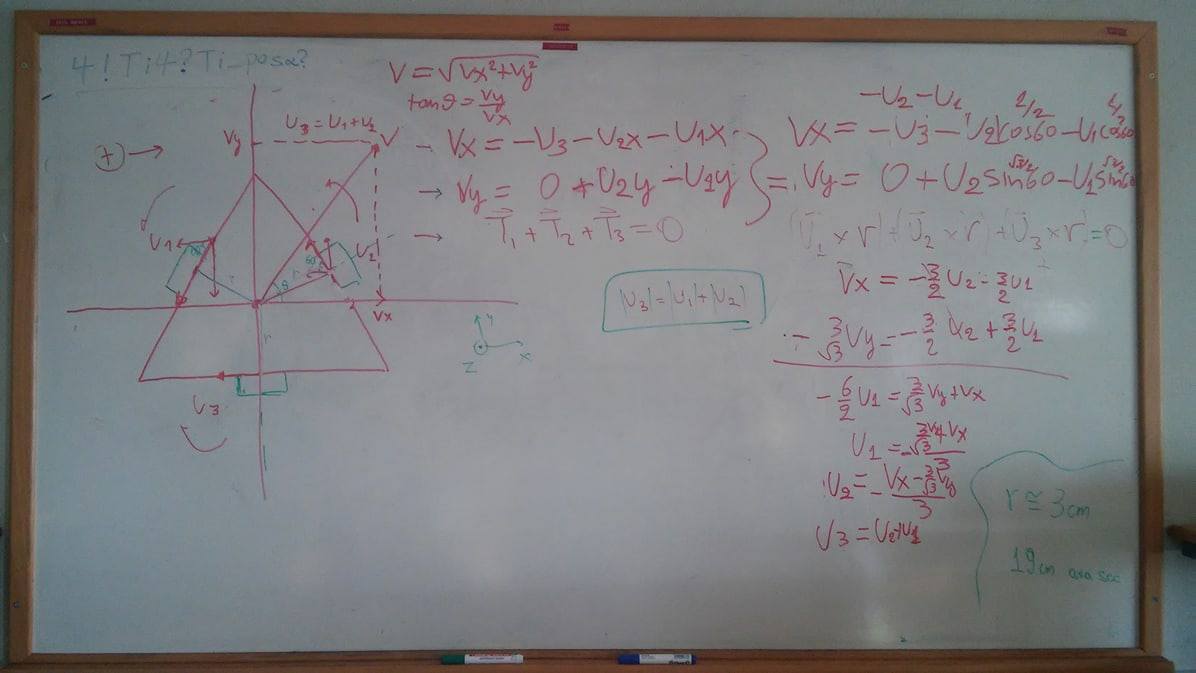 4! Ti 4? Ti_posa?
V = √Vx²+Vy²
tanθ = Vy/Vx
U3 = U1+U2
Vy
V
+ →
U1
U2
60
r
r
θ
Vx
r
U3
y
x
z
- Vx = -U3 - U2x - U1x
→ Vy = 0 + U2y - U1y
→ T1 + T2 + T3 = 0
|U3| = |U1| + |U2|
-U2 - U1 1/2 1/2
Vx = -U3 - U2cos60 - U1cos60
√3/2 √3/2
= Vy = 0 + U2sin60 - U1sin60
(U1 × r) + (U2 × r) + (U3 × r) = 0
Vx = -3/2 U2 - 3/2 U1
- 3/√3 Vy = -3/2 U2 + 3/2 U1
-6/2 U1 = 3/√3 Vy + Vx
U1 = - 3/√3 Vy + Vx / 3
U2 = - Vx - 3/√3 Vy / 3
U3 = U2+U1
r ≅ 3cm
19cm